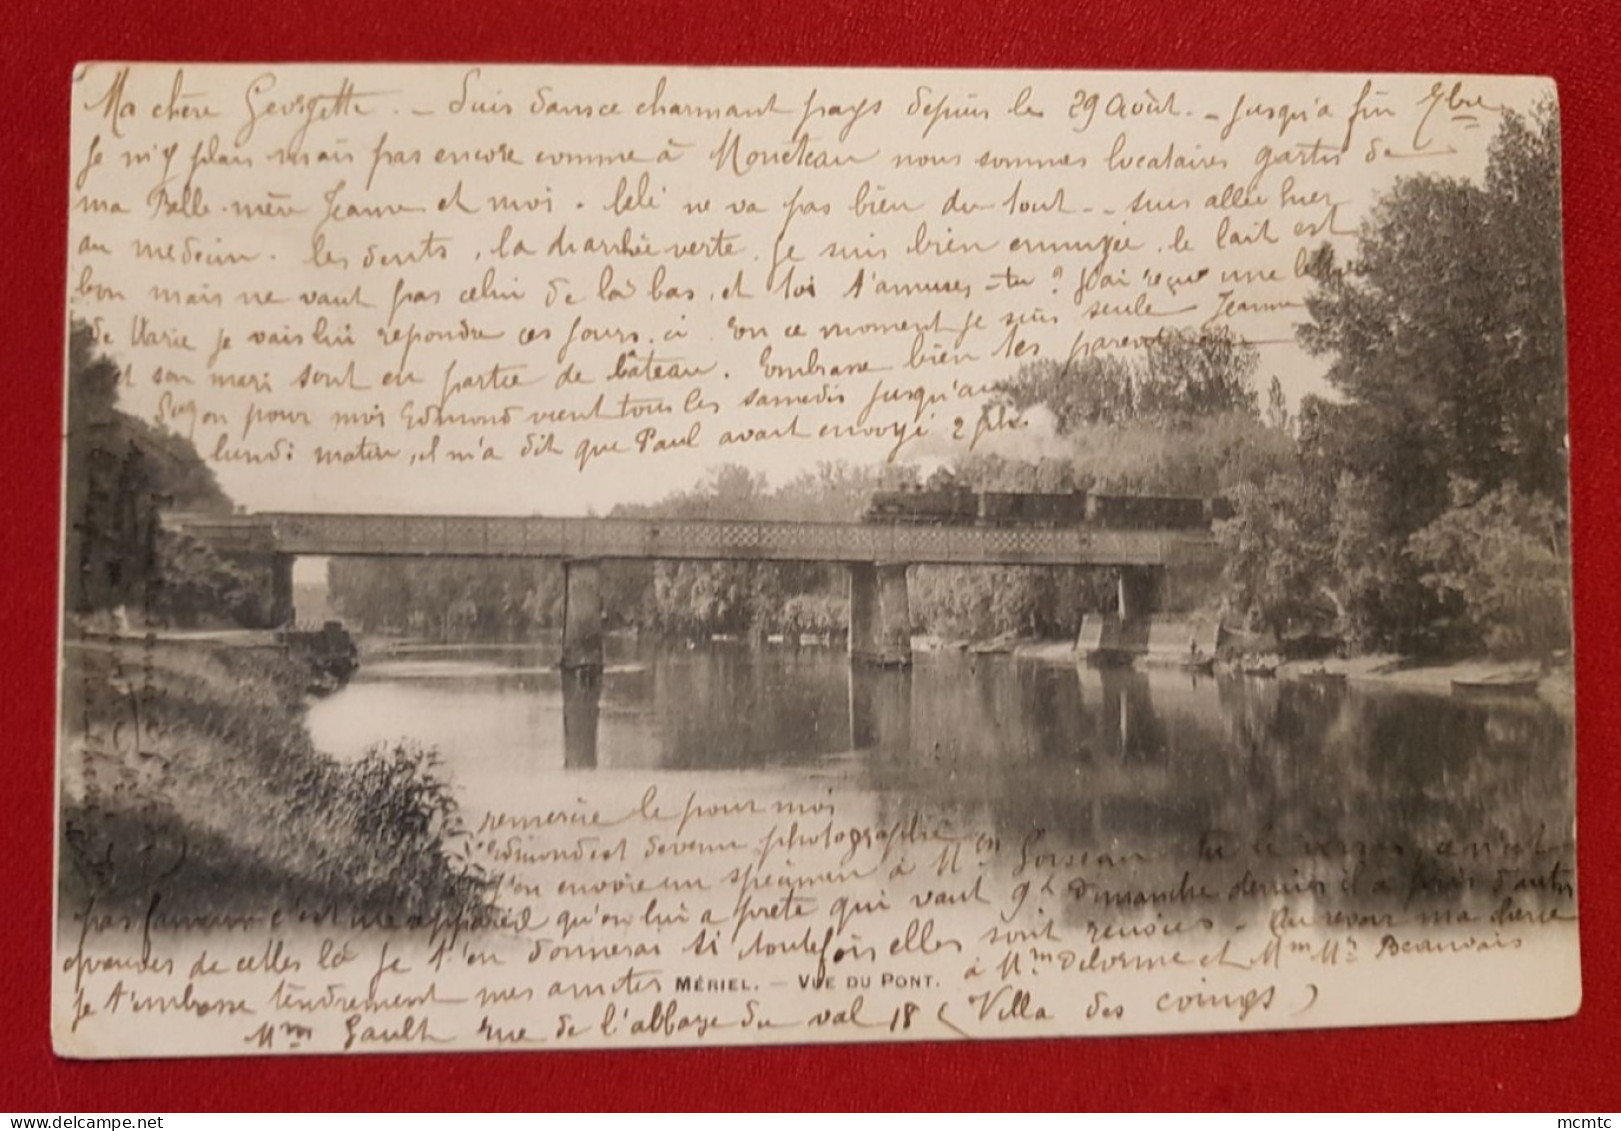 Ma chère Georgette. - Suis dans ce charmant pays depuis le 29 Août. - jusqu'à fin 7bre
Je m'y plais mais pas encore comme à Monéteau nous sommes locataires de
ma Belle-mère Jeanne et moi. Lélé ne va pas bien du tout -- suis allée hier
au médecin. les dents, la diarrhée verte. je suis bien ennuyée. le lait est
bon mais ne vaut pas celui de là bas, et toi t'amuses-tu? J'ai reçu une lettre
de Marie je vais lui répondre ces jours. ci. En ce moment je suis seule Jeanne
et son mari sont en partie de bâteau. Embrasse bien tes parents
pour moi Edmond vient tous les samedis jusqu'au
lundi matin, il m'a dit que Paul avait envoyé 2
remercie le pour moi
Edmond est devenu photographe
j'en envoie un spécimen à Mr. tu
pas fameux c'est un appareil qu'on lui a prêté qui vaut 9f Dimanche dernier il a pris d'autres
de celles là je t'en donnerai si toutefois elles sont Au revoir ma chérie
je t'embrasse tendrement mes amitiés à Mme Delorme et Mme Mr Beauvais
MÉRIEL. - VUE DU PONT.
Mme Gault rue de l'abbaye du val 18 (Villa des coings)
mcmtc